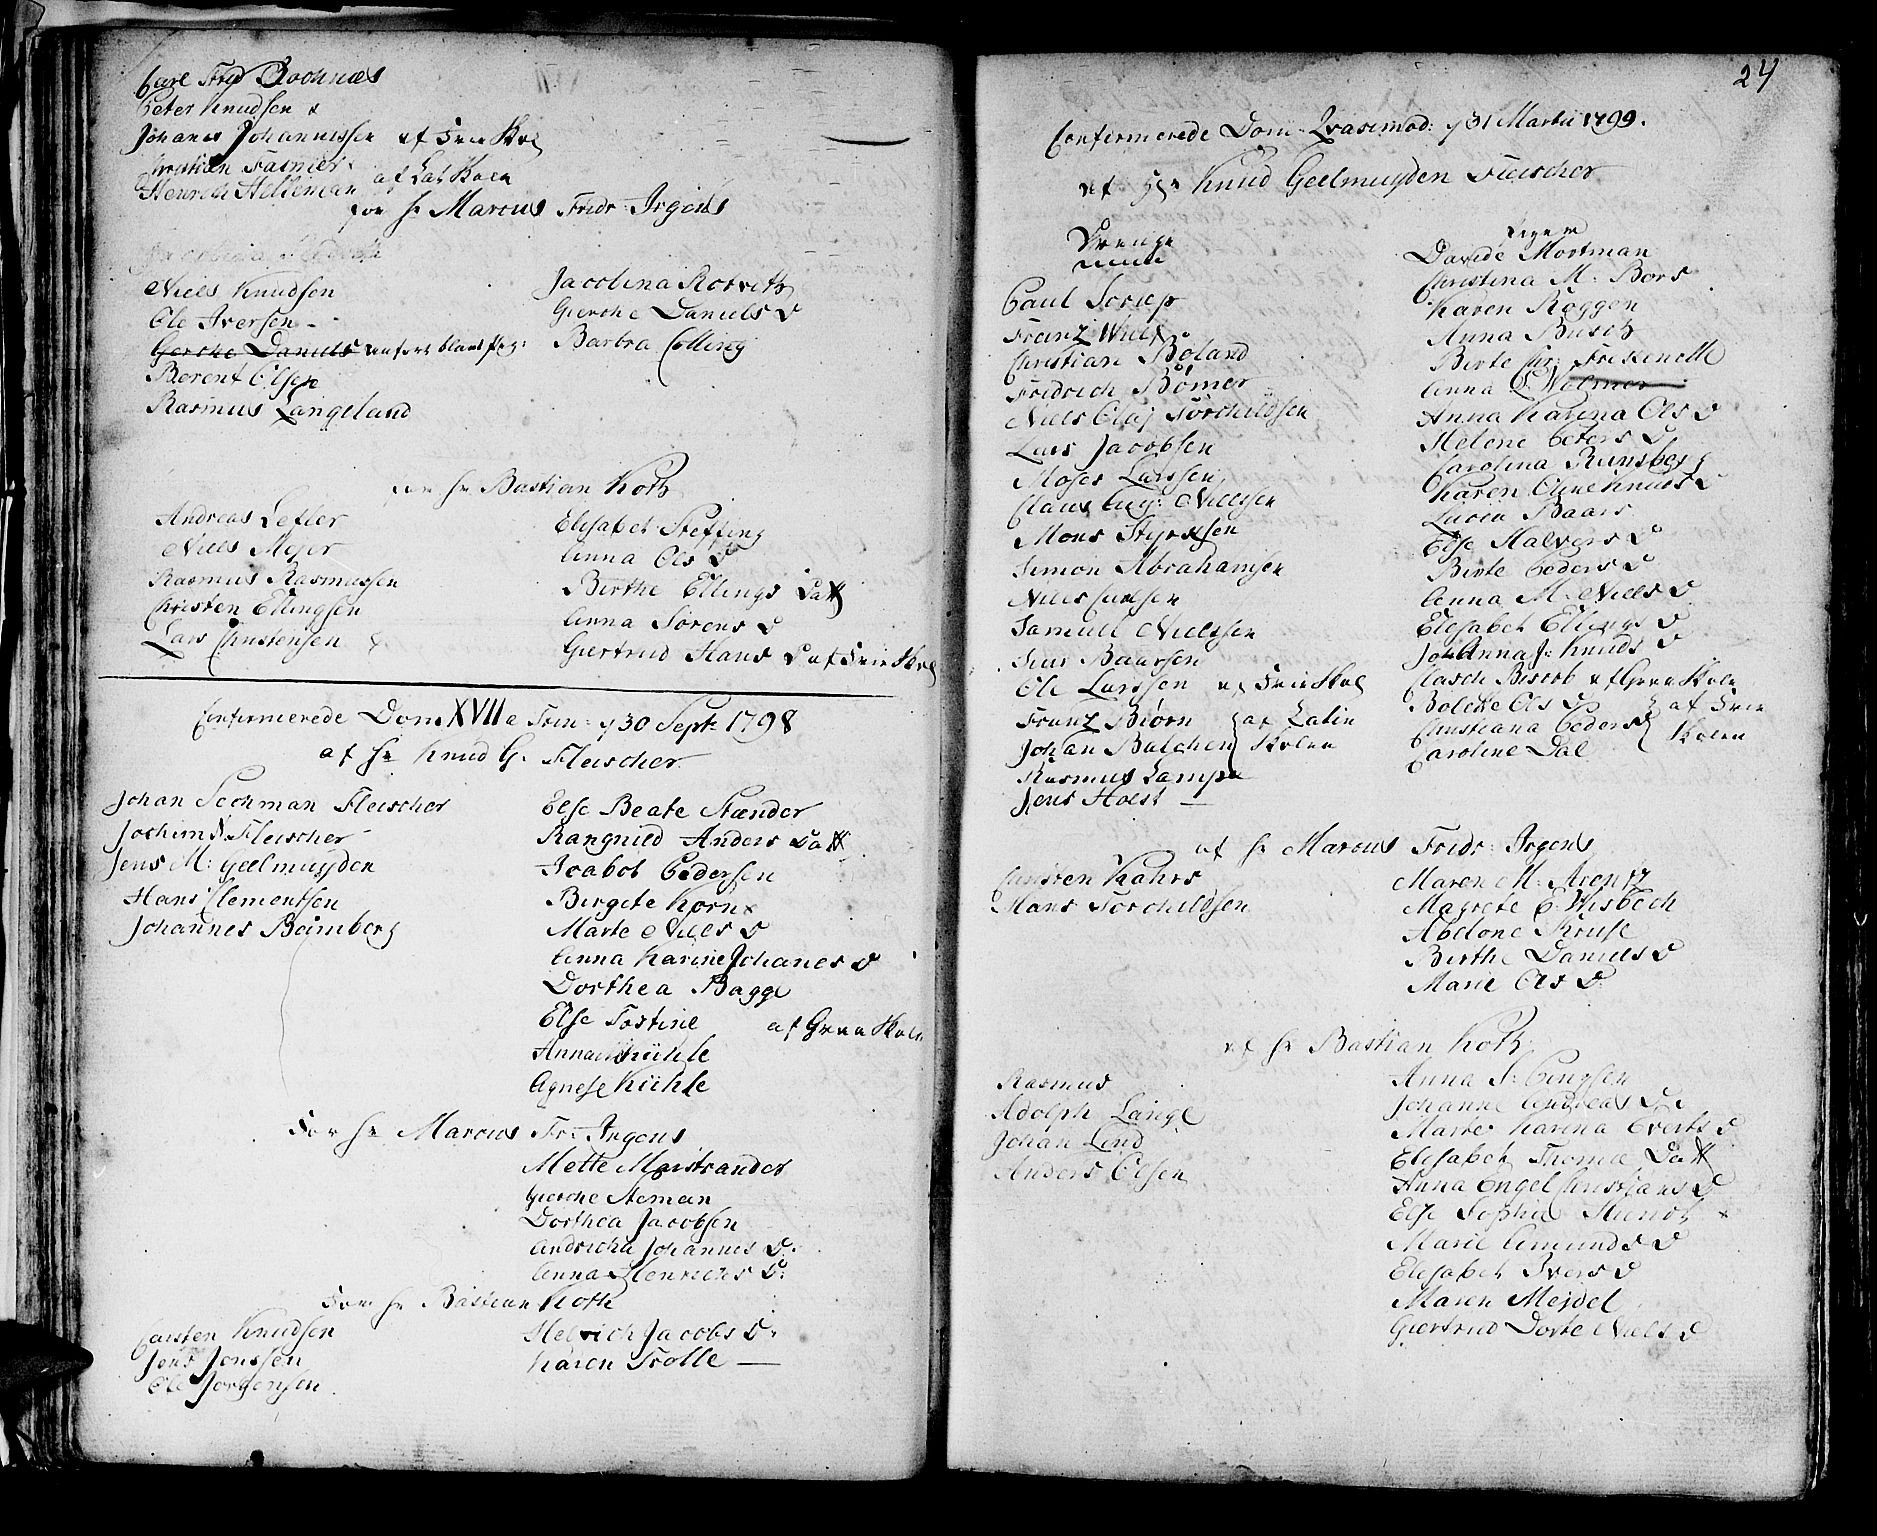 Carl Frid Bochnæs
Peter Knudsen x
Johanes Johannessen af Frie Skol
Christian Fasmer
Henrich Hilleman af Lat Skoen
for Hr Marcus Fridr Irgens
Niels Knudsen
Ole Iversen
Gerche Daniels anføre blant pig:
Berent Olsen
Rasmus Langeland
Jacobina Rosvith
Gierche Daniels D
Barbra Colling
for Hr Bastian Koth
Andreas Lefler
Niels Mejer
Rasmus Rasmussen
Christen Ellingsen
Lars Christensen
Elisabet Steffing
Anna Ols D
Birthe Ellings Datt
Anna Sørens D
Giertrud Hans D af Frie Skol
Confirmerede Dom XVII a Trin: d 30 Sept: 1798
af Hr Knud G. Fleischer
Johan Sechman Fleischer
Jochim Fleischer
Jens M: Geelmuyden
Hans Clementsen
Johannes Bamberg
Else Beate Stænder
Rangnild Anders Datt
Isabot Pedersen
Birgete Korn
Marte Niels D
Anna Karine Johanes D
Dorthea Bagge
Else Tostine af Green Skole
Anna Kühle
Agnese Kühle
For Hr Marcus Fr: Irgens
Mette Marstrander
Gierche Neman
Dorthea Jacobsen
Andricha Johannes D.
Anna Henrichs D:
For Hr Bastian Koth
Carsten Knudsen
Jens Jenssen
Ole Jørgensen
Helvich Jacobs D.
Karen Trolle
24
Confirmerede Dom: Qvasimod: d 31 Martii 1799.
af Hr Knud Geelmuyden Fleischer
Drenge
Paul Sorup
Franz Wiel
Christian Boland
Fridrich Bømer
Niels Olaj Torchildsen
Lars Jacobsen
Moses Larssen
Claus Aug: Nielsen
Mons Styrksen
Simon Abrahamsen
Niels Carlsen
Samuel Nielssen
Baarsen
Ole Larssen af Frie Skol
Franz Biørn } af Latin
Johan Balchen } Skolen
Rasmus Lampe
Jens Holst
Piger
Davide Mortman
Christina M: Bors
Karen Roggen
Anna Busch
Birte Chr: Friskenell
Anna C Wolmer
Anna Karina Ols D
Helene Peters D
Carolina Runsberg
Karen Oline Knuds D
Lucia Baars
Else Halvors D
Birte Peders D
Anna M: Niels D
Elisabet Ellings D
Johanna J: Knuds D
Clasche Biscob af Green Skole
Bolette Ols D } af Frie
Christiana Peders D } Skolen
Caroline Dal
af Hr Marcus Fridr: Irgens
Christen Kahrs
Hans Torchildsen
Maren M: Arentz
Magrete E: Wisbech
Abelone Kruse
Birthe Daniels D
Marie Ols D:
af Hr Bastian Koth
Rasmus
Adolph Lange
Johan Lind
Anders Olsen
Anna S: Pingsen
Johanne Andreas D:
Marte Karina Everts D
Elisabeth Thomæ Datt
Anna Engel Christians D
Else Sophie Hundt x
Marie Amunds D
Elisabet Ivers D
Maren Mejdel
Giertrud Dorte Niels D